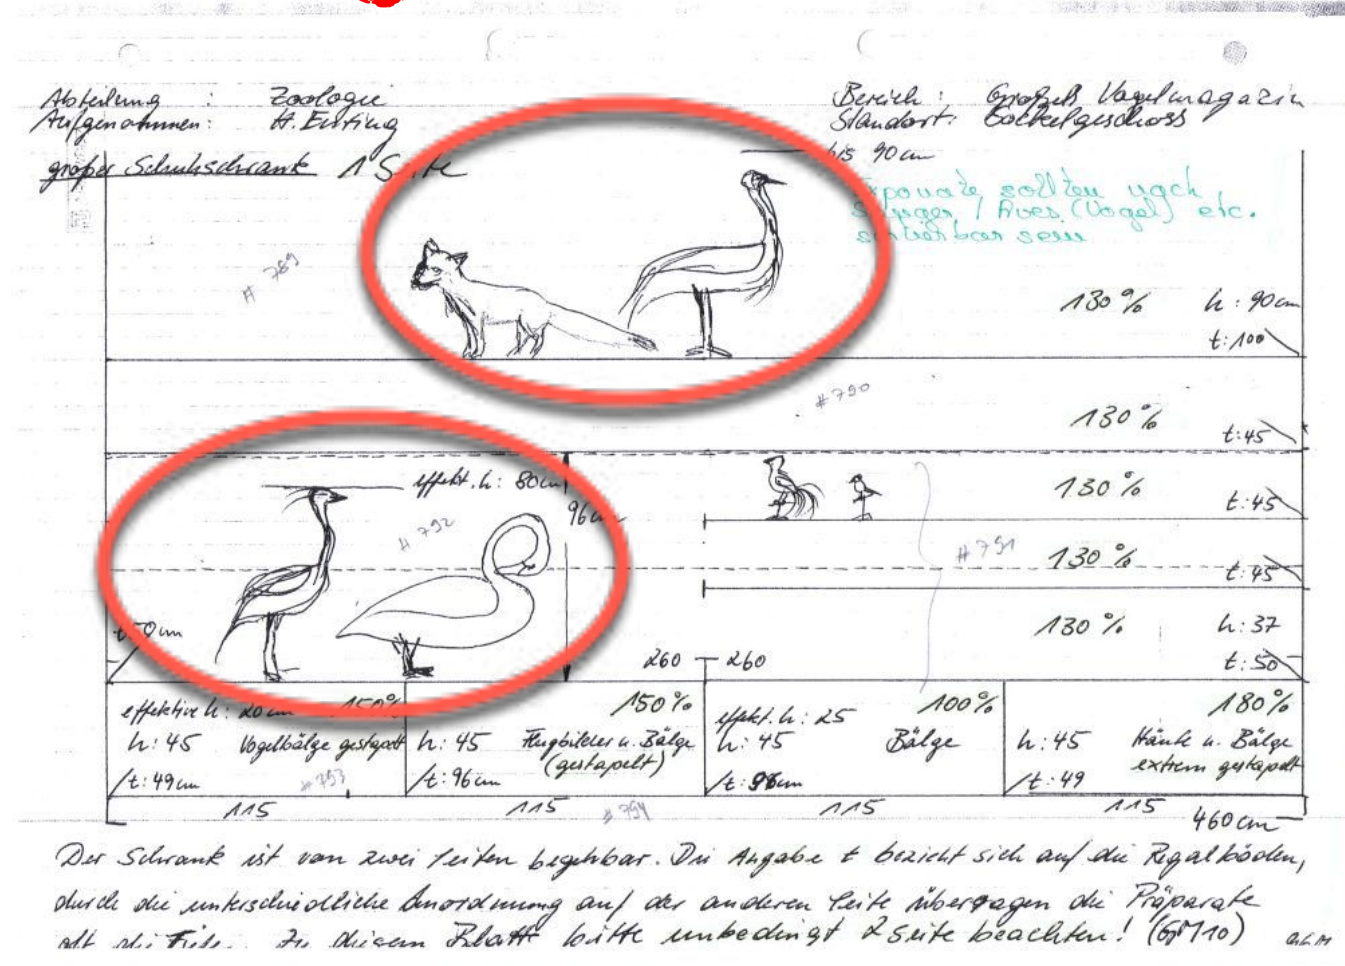 Abteilung : Zoologie
Aufgenommen: H. Ewing
Bereich : Großes Vogelmagazin
Standort: Sockelgeschoss
großer Schuhschrank 1 Seite
bis 90 cm
Exponate sollten nach
Säuger / Aves (Vogel) etc.
sortierbar sein
# 789
130% h: 90cm
t: 100
# 790
130% t: 45
effekt. h: 80cm
96cm
# 792
130% t: 45
# 791
130% t: 45
130% h: 37
t: 50cm
260 260
t: 50
effektive h: 20cm 150%
h: 45 Vogelbälge gestapelt
/t: 49cm
# 793
150%
h: 45 Flugbilder u. Bälge
(gestapelt)
/t: 96cm
effekt. h: 25 100%
h: 45 Bälge
/t: 96cm
180%
h: 45 Häute u. Bälge
extrem gestapelt
/t: 49
115 115 115 115
# 794
460 cm
Der Schrank ist von zwei Seiten begehbar. Die Angabe t bezieht sich auf die Regalböden,
durch die unterschiedliche Anordnung auf der anderen Seite überragen die Präparate
oft die Tiefe. Zu diesem Blatt bitte unbedingt 2 Seite beachten!